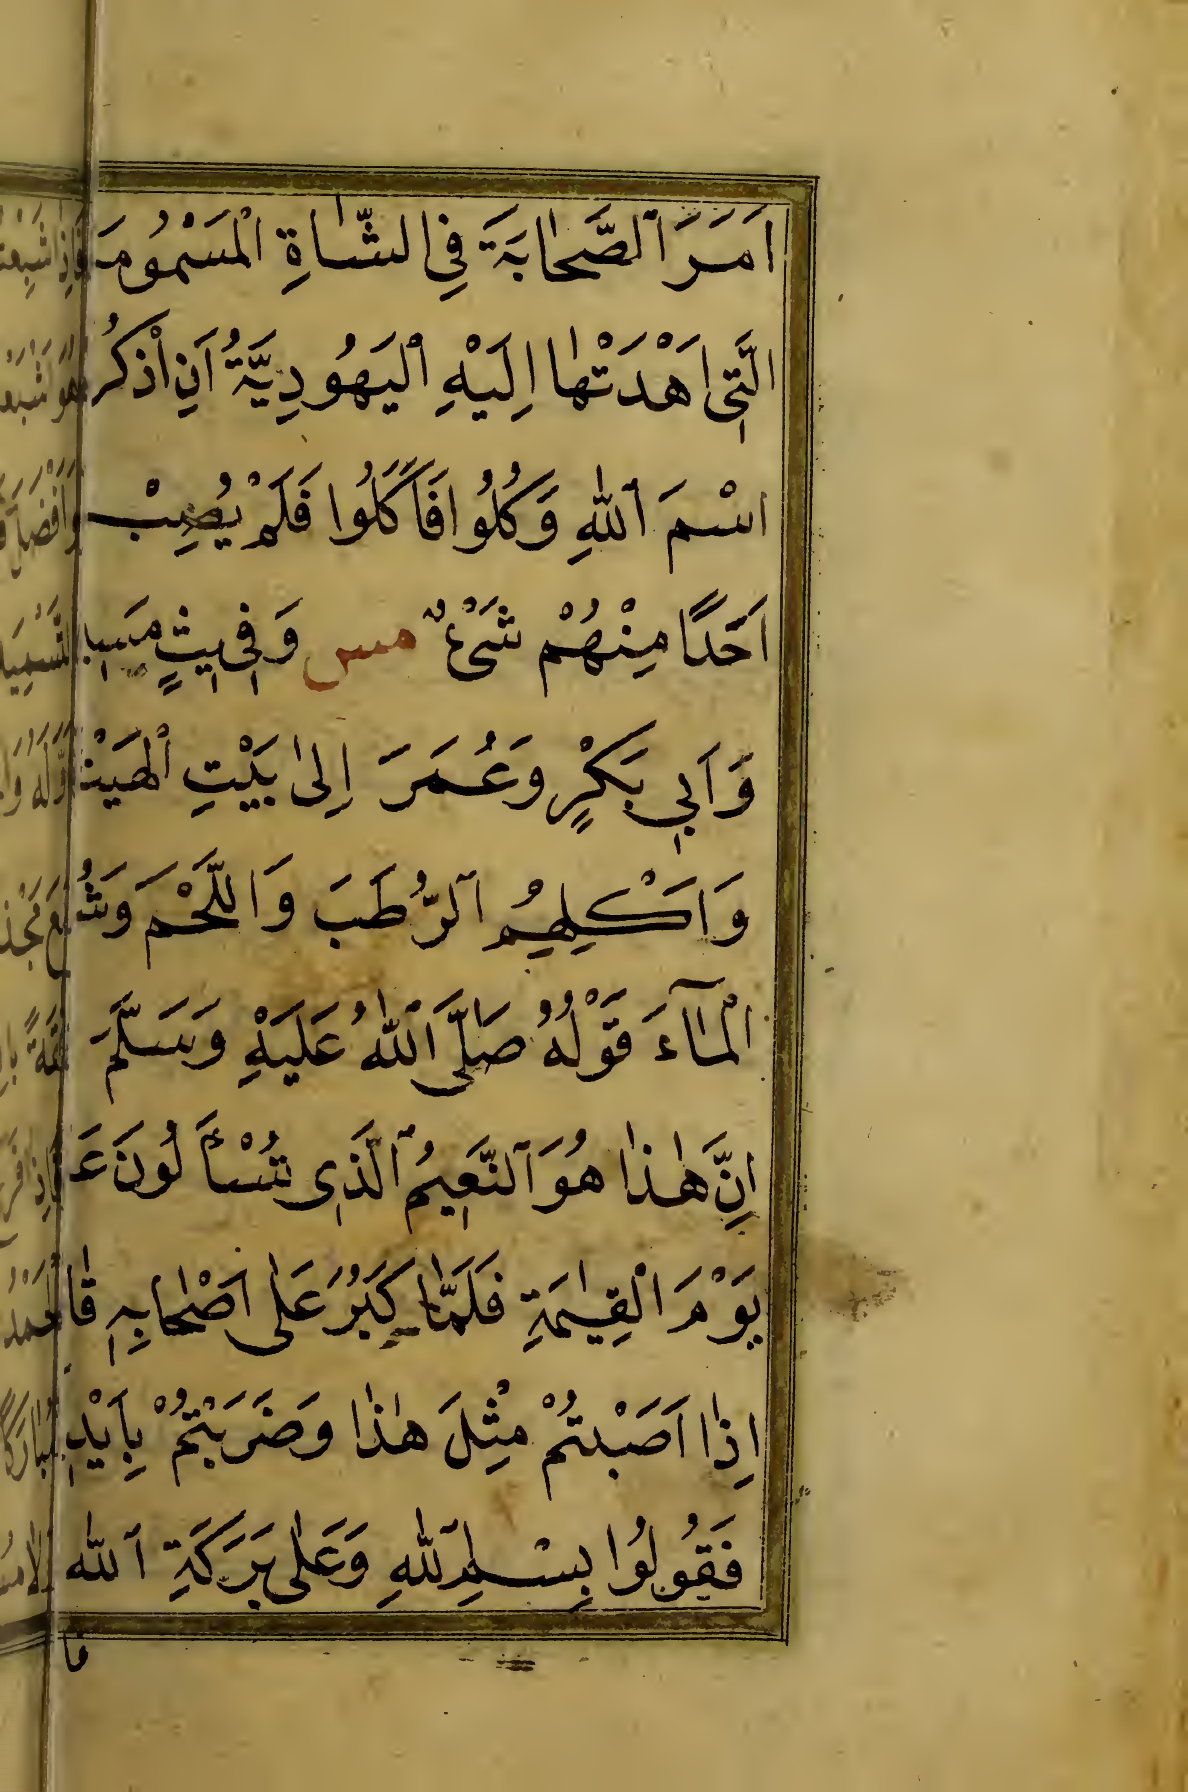 اَمَرَ ٱلصَّحَابَةَ فِي الشَّاةِ الْمَسْمُومَ
الَّتِي اَهْدَتْهَا اِلَيْهِ ٱلْيَهُودِيَّةُ اَنِ اذْكُرُ
اسْمَ ٱللّٰهِ وَكُلُوا فَاَكَلُوا فَلَمْ يُصِبْ
اَحَدًا مِنْهُمْ شَىْءٌ مس وَفِي
وَاَبِي بَكْرٍ وَعُمَرَ اِلىٰ بَيْتِ ٱلْهَيْثَ
وَاَكْلِهِمُ ٱلرُّطَبَ وَاللَّحْمَ وَشُ
الْمَآءَ قَوْلُهُ صَلَّى ٱللّٰهُ عَلَيْهِ وَسَلَّمَ
اِنَّ هٰذَا هُوَ ٱلنَّعِيمُ ٱلَّذِي تُسْأَلُونَ عَ
يَوْمَ الْقِيٰمَةِ فَلَمَّا كَبُرَ عَلٰى اَصْحَابِهِ قَا
اِذَا اَصَبْتُمْ مِثْلَ هٰذَا وَضَرَبْتُمْ بِاَيْدِ
فَقُولُوا بِسْمِ ٱللّٰهِ وَعَلٰى بَرَكَةِ ٱللّٰه
فا